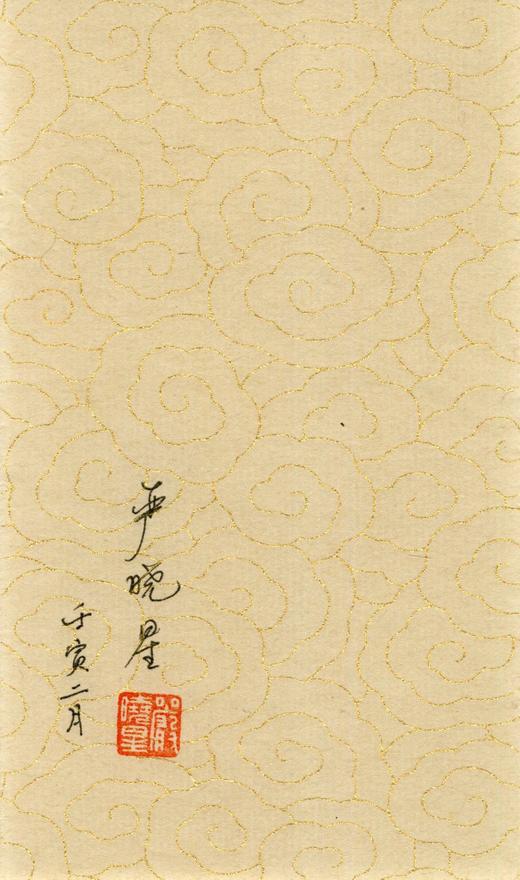 严晓星
壬寅二月
嚴曉星